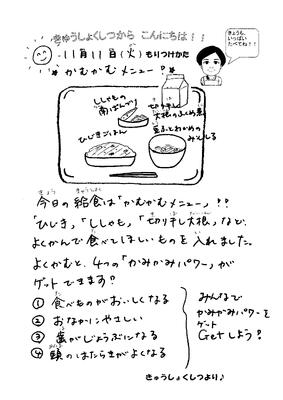 きゅうしょくしつから こんにちは!!
きょうも、
いっぱい
たべてね!!
11月11日(火)もりつけかた
かむかむメニュー!
ししゃもの
南ばんづけ
切り干し
大根のふくめ煮
ひじきごはん
豆ふとわかめの
みそしる
今日の給食は「かむかむメニュー」!?
「ひじき」「ししゃも」「切り干し大根」など、
よくかんで食べてほしいものを入れました。
よくかむと、4つの「かみかみパワー」が
ゲットできます?
① 食べものがおいしくなる
② おなかにやさしい
③ 歯がじょうぶになる
④ 頭のはたらきがよくなる
みんなで
かみかみパワーを
ゲット
Getしよう?
きゅうしょくしつより♪